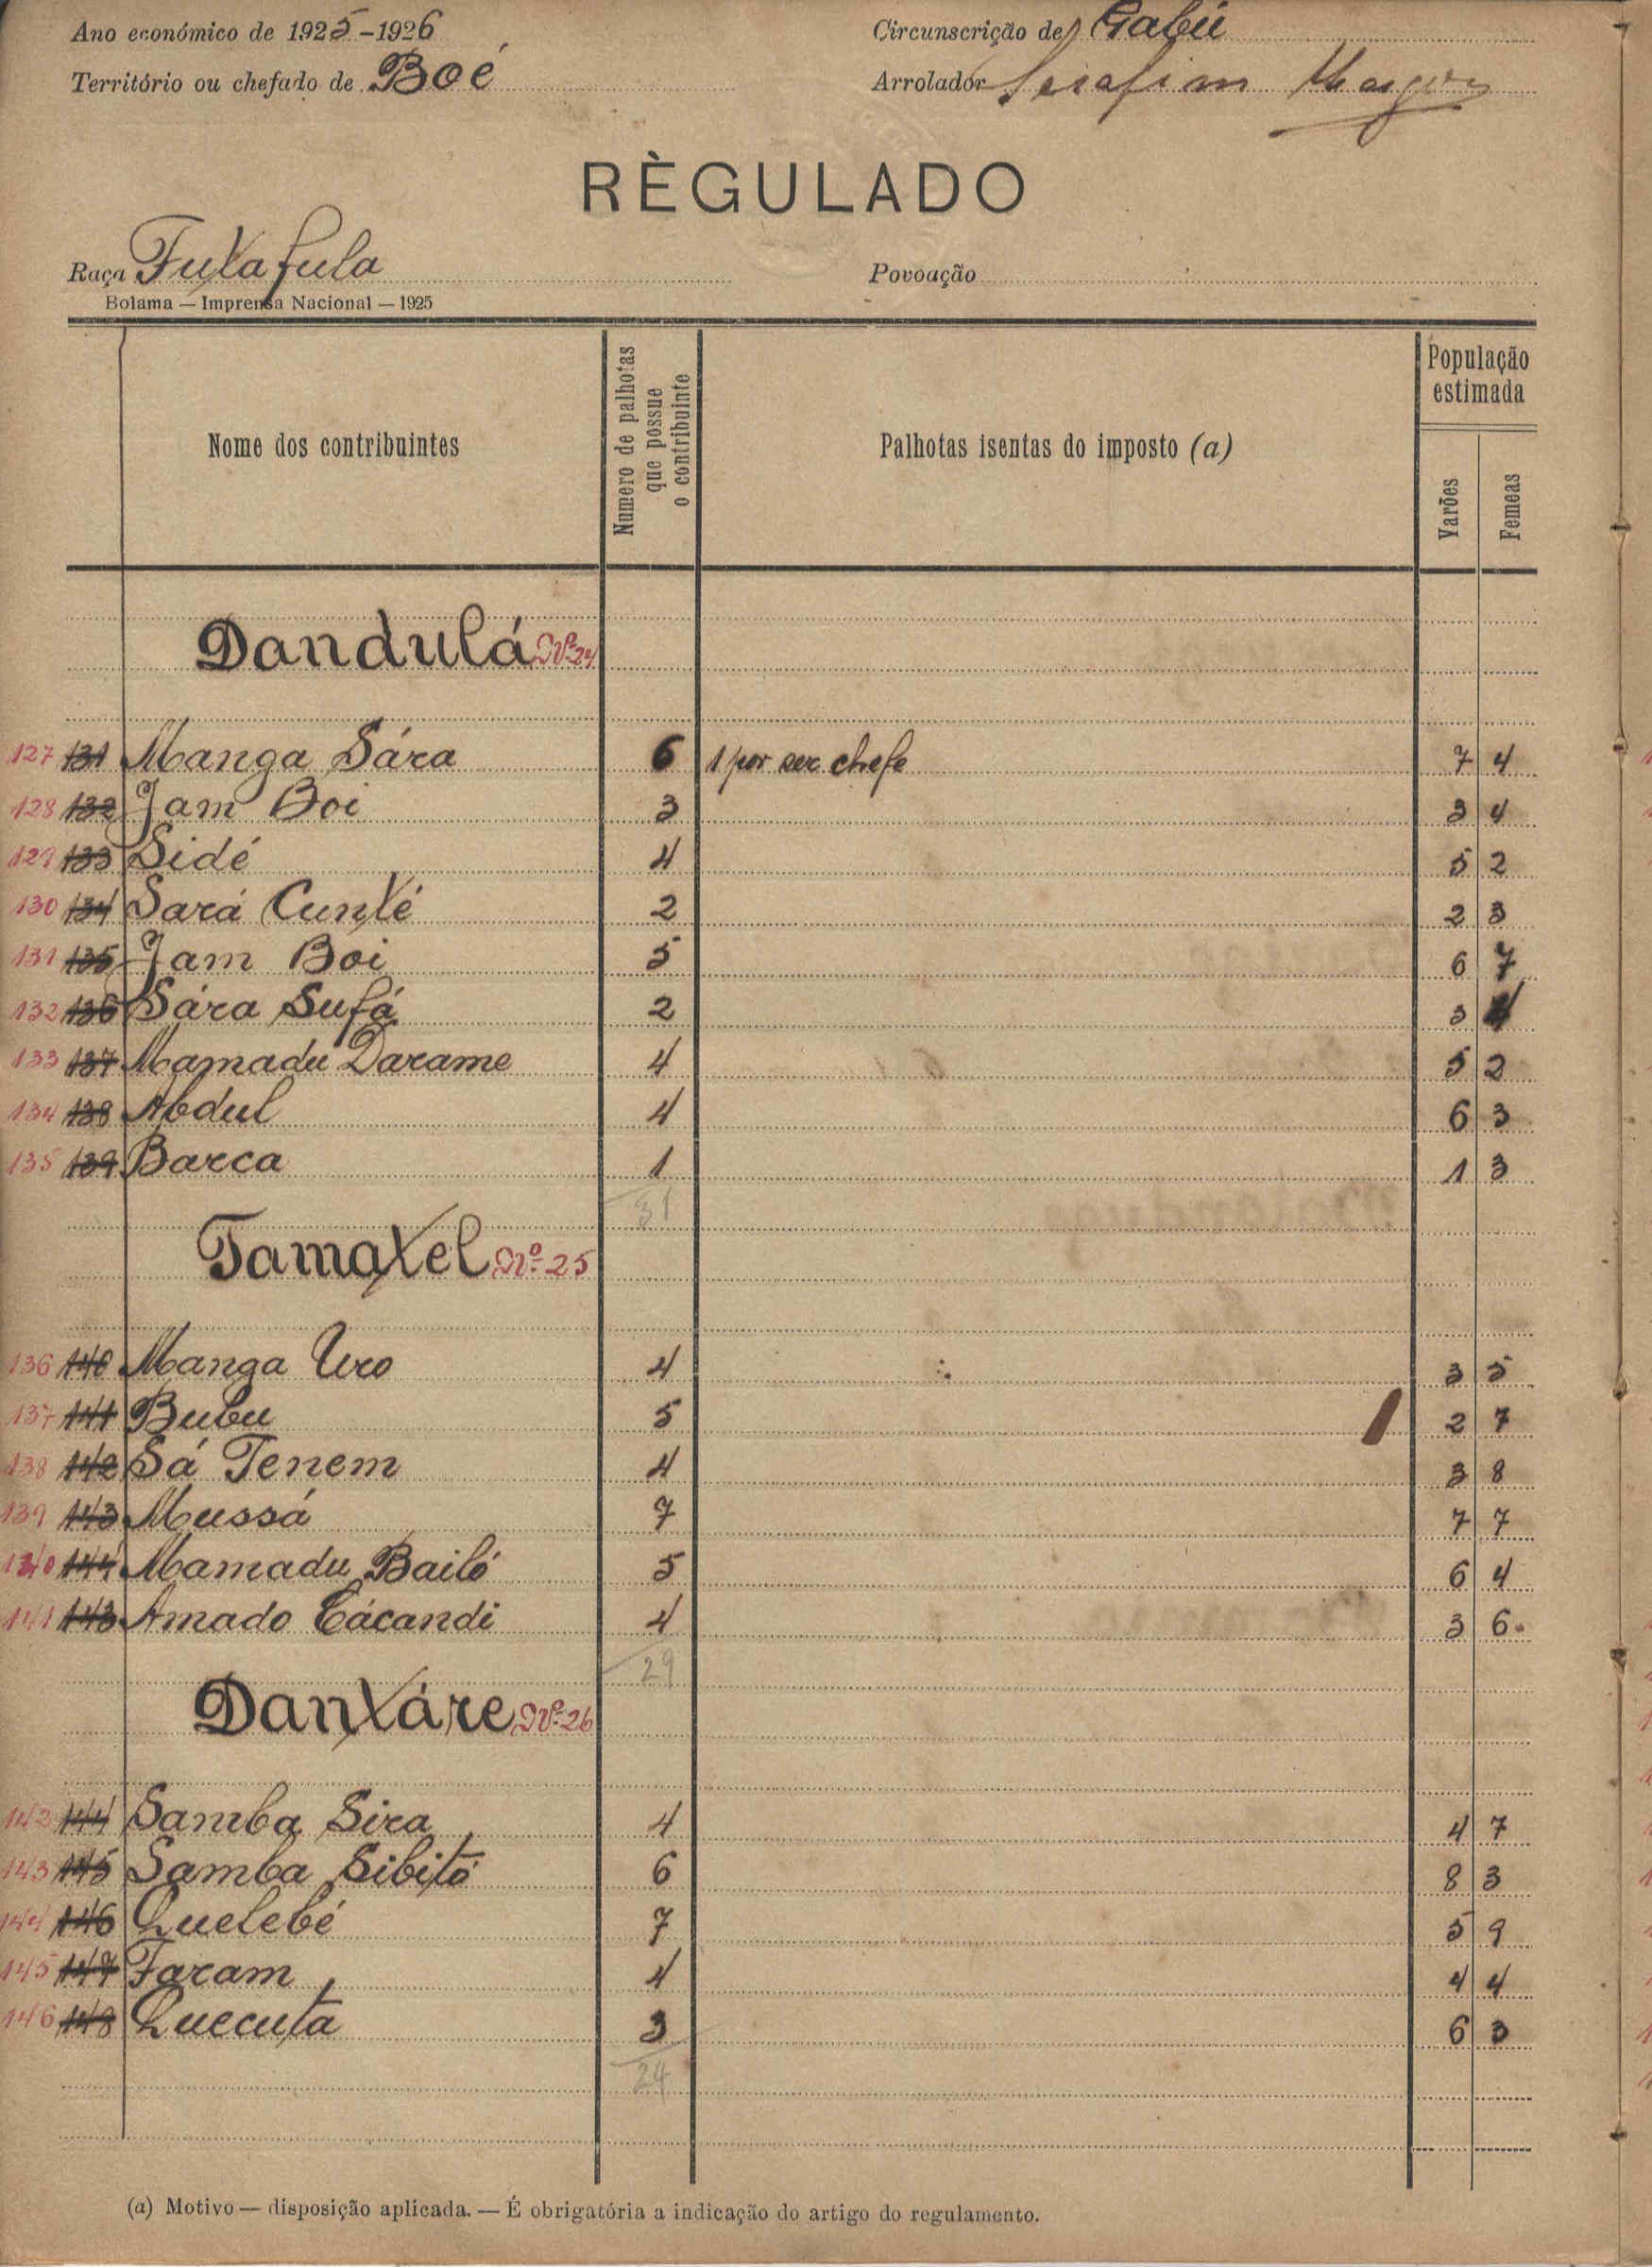 Ano económico de 1925-1926
Circunscrição de Gabú
Território ou chefado de Boé
Arrolador Serafim
RÈGULADO
Raça Fuxafula
Povoação
Bolama — Imprensa Nacional — 1925
Nome dos contribuintes
Numero de palhotas que possue o contribuinte
Palhotas isentas do imposto (a)
População estimada
Varões
Femeas
Dandulá Nº 24
127 131 Manga Sára 6 1 por ser chefe 7 4
128 132 Jam Boi 3 3 4
129 133 Sidé 4 5 2
130 134 Sará Cunxé 2 2 3
131 135 Jam Boi 5 6 7
132 136 Sára Sufá 2 3 4
133 137 Mamadu Darame 4 5 2
134 138 Abdul 4 6 3
135 139 Barca 1 1 3
31
Tamaxel Nº 25
136 140 Manga Uro 4 3 5
137 141 Bubu 5 2 7
138 142 Sá Tenem 4 3 8
139 143 Mussá 7 7 7
140 144 Mamadu Bailó 5 6 4
141 143 Amado Cácandi 4 3 6
29
Danxáre Nº 26
142 144 Samba Sira 4 4 7
143 145 Samba Sibitó 6 8 3
144 146 Quelebé 7 5 9
145 147 Faram 4 4 4
146 148 Quecuta 3 6 3
24
(a) Motivo — disposição aplicada. — É obrigatória a indicação do artigo do regulamento.